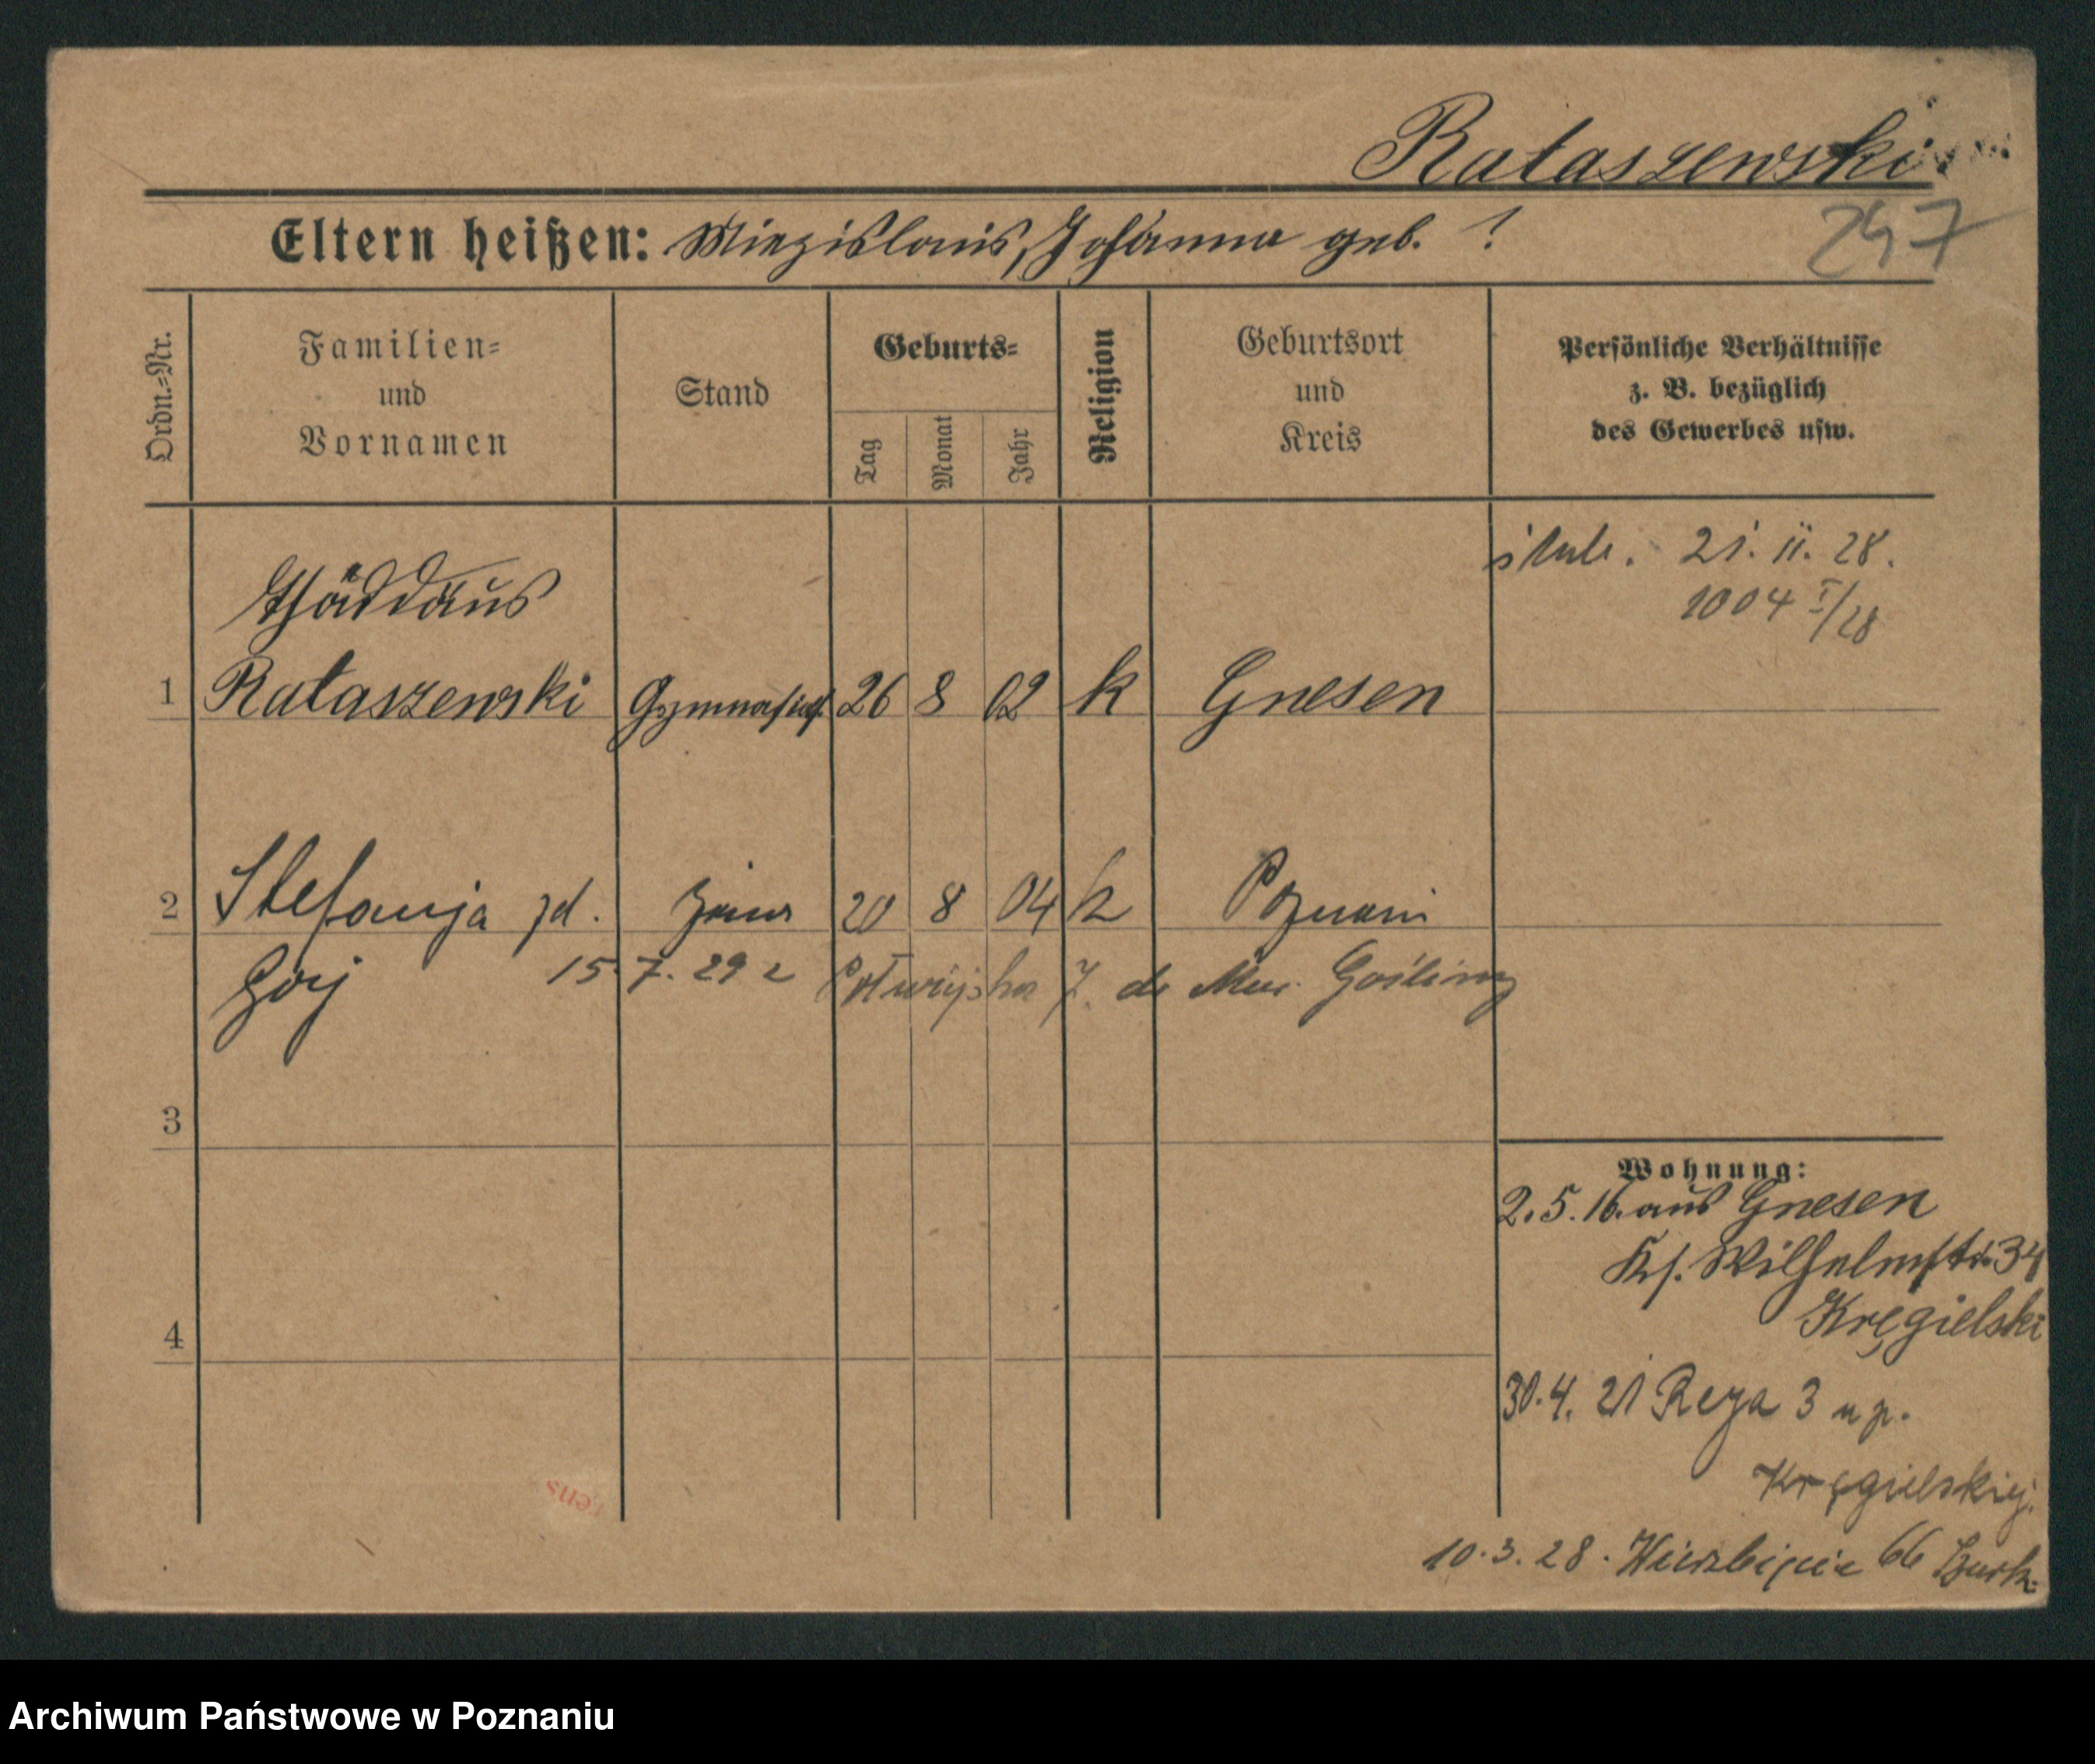 Rataszewski
Eltern heißen: Miezislaus, Johanna geb. ?
247
Ordn.-Nr.
Familien-
und
Vornamen
Stand
Geburts-
Tag
Monat
Jahr
Religion
Geburtsort
und
Kreis
Persönliche Verhältnisse
z. B. bezüglich
des Gewerbes usw.
21. 11. 28.
1004 I/28
Thaddäus
1 Rataszewski Gymnasiast 26 8 02 k Gnesen
2 Stefanja zd. żona 20 8 04 k Poznań
Góij 15. 7. 29 z 7. do Mur. Gośliny
3
4
Wohnung:
2. 5. 16. aus Gnesen
Ks. Wilhelmstr. 34
Kręgielski
30. 4. 21 Reja 3 u p.
Kręgielskiej.
10. 3. 28. Wierzbięcice 66
Archiwum Państwowe w Poznaniu